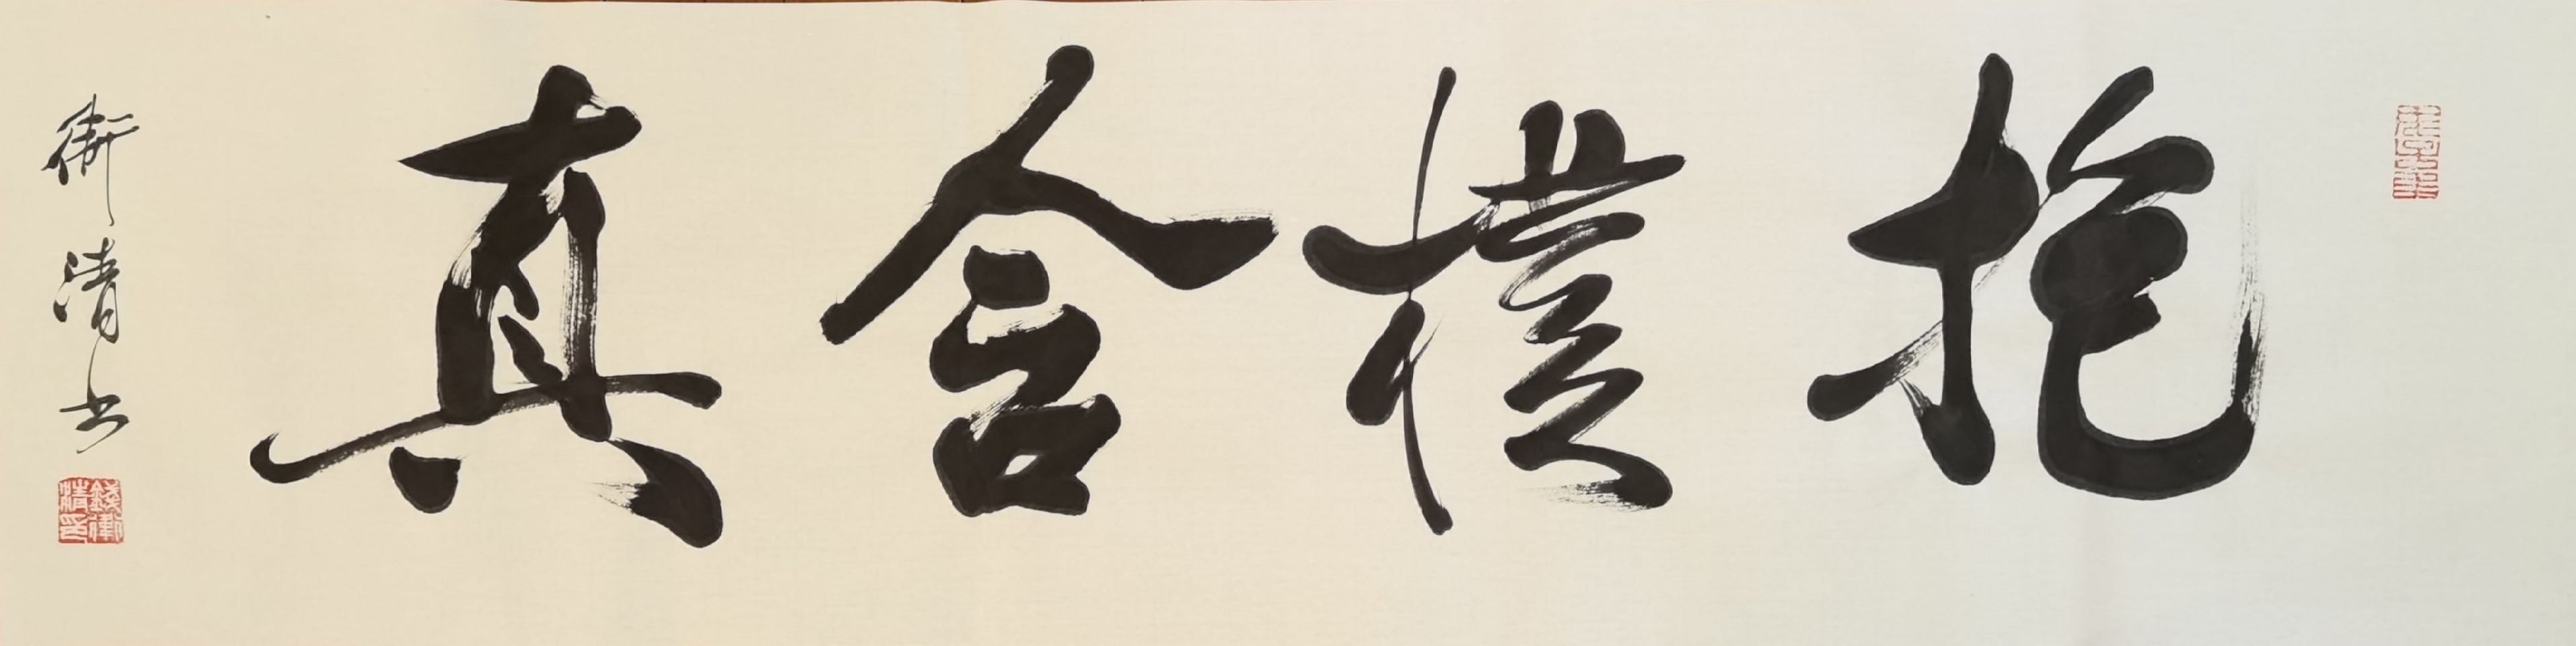 抱樸含真
衛清书
錢衛清印